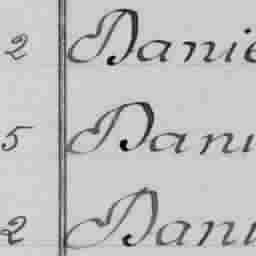 2 Danie
5 Dani
2 Dani